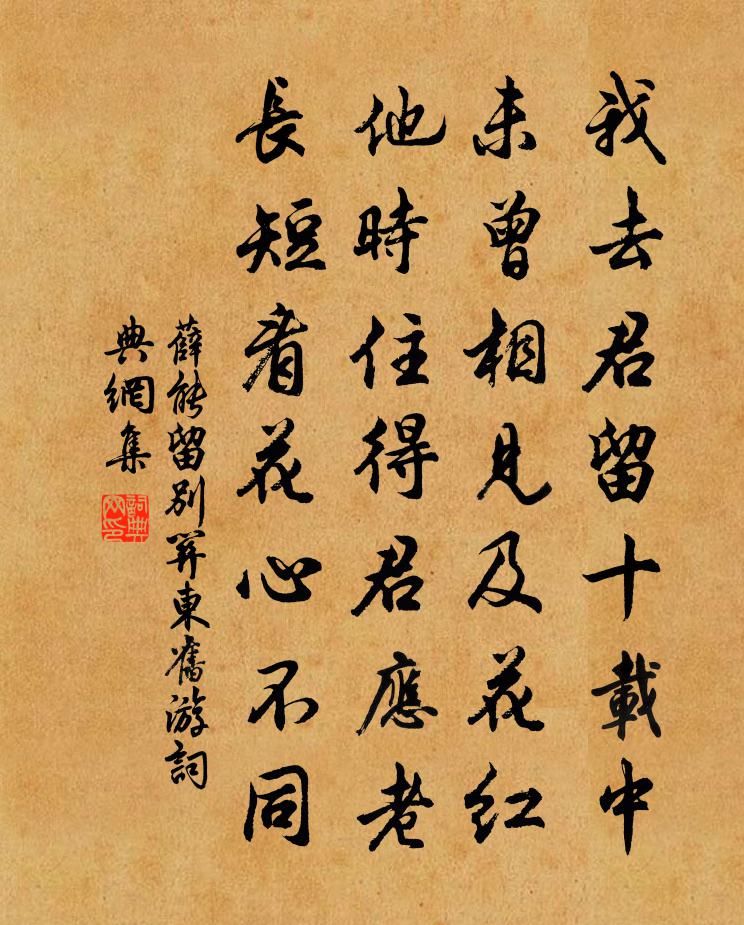 我去君留十載中
未曾相見及花紅
他時住得君應老
長短看花心不同
薛能留別關東舊游詞
典網集
詞典網印